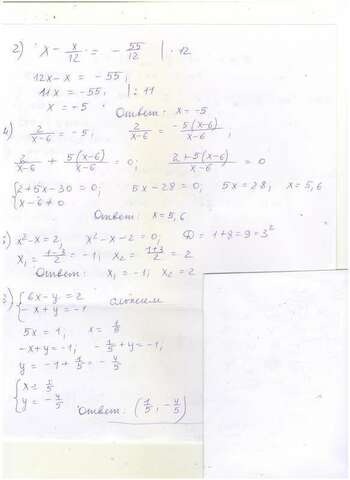 2) x - x/12 = - 55/12 | · 12
12x - x = - 55;
11x = -55, | : 11
x = -5
Ответ: x = -5
4) 2/(x-6) = -5; 2/(x-6) = -5(x-6)/(x-6);
2/(x-6) + 5(x-6)/(x-6) = 0; (2+5(x-6))/(x-6) = 0
{2+5x-30=0; 5x-28=0; 5x=28; x=5,6
x-6≠0
Ответ: x=5,6
) x²-x=2; x²-x-2=0; D = 1+8=9=3²
x₁ = (1-3)/2 = -1; x₂ = (1+3)/2 = 2
Ответ: x₁ = -1; x₂ = 2
) {6x-y=2 сложим
-x+y=-1
5x=1; x = 1/5
-x+y=-1; -1/5+y=-1;
y = -1+1/5 = -4/5
{x = 1/5
y = -4/5
Ответ: (1/5; -4/5)